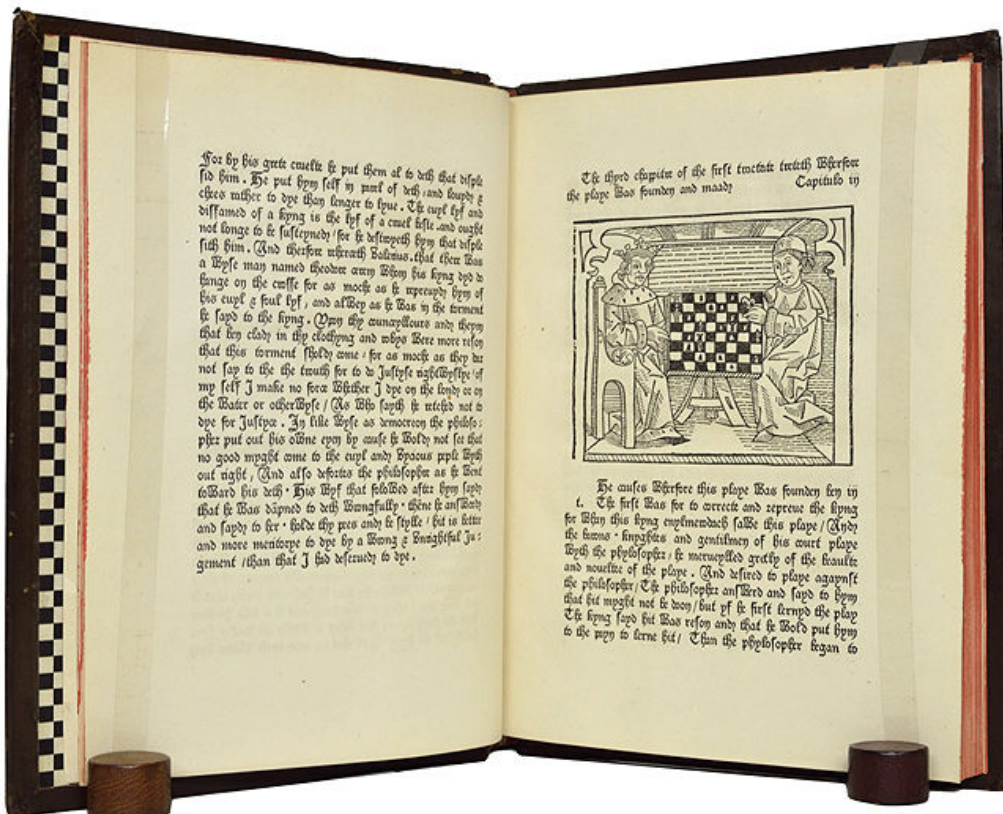 For by his grete cruelte he put them al to deth that disple
sid him . He put hym self in parel of deth , and louyd &
chees rather to dye than lenger to lyue . The euyl lyf and
diffamed of a kyng is the lyf of a cruel beste , and ought
not longe to be susteyned / for he destroyeth hym that disple
sith him . And therfore reherceth Valerius . that there was
a wyse man named theodore cerem whom his kyng dyd do
hange on the crosse for as moche as he repreuyd hym of
his euyl & foul lyf , and alwey as he was in the torment
he sayd to the kyng . Vpon thy counceyllours and theym
that ben clad in thy clothyng and robys were more reson
that this torment sholde come / for as moche as they dar
not say to the the trouth for to do Justyse rightwyslye / of
my self I make no force whether I dye on the londe or on
the water or otherwyse / As who sayth he retched not to
dye for Justyce . In like wyse as democreon the philoso :
pher put out his owne eyen by cause he wold not see that
no good myght come to the euyl and vycious peple wyth
out right , And also defortes the philosopher as he went
toward his deth . His wyf that folowed after hym sayd
that he was dāpned to deth wrongfully . thēne he answerd
and sayd to her . holde thy pees and be stylle / hit is better
and more meritorye to dye by a wrong & vnrightful Ju :
gement / than that I had deseruyd to dye .
The thyrd chapitre of the first tractate treteth wherfore
the playe was founden and maad Capitulo iij
He causes wherfore this playe was founden ben iij
t . The first was for to correcte and repreue the kyng
for whan this kyng enylmerdach sawe this playe / And
the barons . knyghtes and gentilmen of his court playe
wyth the phylosopher / he merueylled gretly of the beaulte
and nouelte of the playe . And desired to playe agaynst
the philosopher / The philosopher answerd and sayd to hym
that hit myght not be don / but yf he first lernyd the play
The kyng sayd hit was reson and that he wold put hym
to the peyn to lerne hit / Than the phylosopher began to